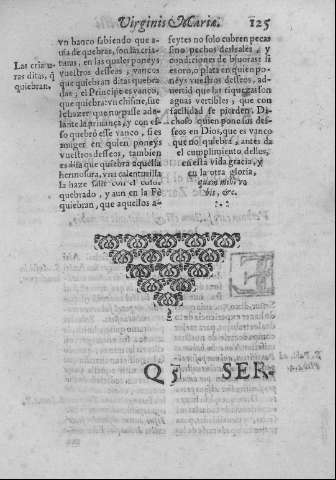 Virginis Mariæ. 125
vn banco sabiendo que a-
uia de quebras, son las cria-
turas, en las quales poneys
vuestros desseos, vancos
que quiebran ditas quebra
das, el Principe es vanco,
que quiebra: vn chisme, sue
le hazer que no passe ade-
lante la priuança, y con es-
so quebrò esse vanco, si es
muger en quien poneys
vuestros desseos, tambien
es dita que quiebra aquella
hermosura, vna calenturilla
la haze salir con el color
quebrado, y aun en la Fè
quiebran, que aquellos a-
Las criatu
ras ditas, q̃
quiebran.
feytes no solo cubren pecas
sino pechos desleales, y
condiciones de biuoras: si
es oro, o plata en quien po-
neys vuestros desseos, ad-
uertid que las riquezas son
aguas vertibles, que con
facilidad se pierden. Di-
choso quien pone sus des-
seos en Dios, que es vanco
que no quiebra, antes da
el cumplimiento dellos,
en esta vida gracia, y
en la otra gloria,
quam mihi vo
bis, &c.
Q 3 SER-